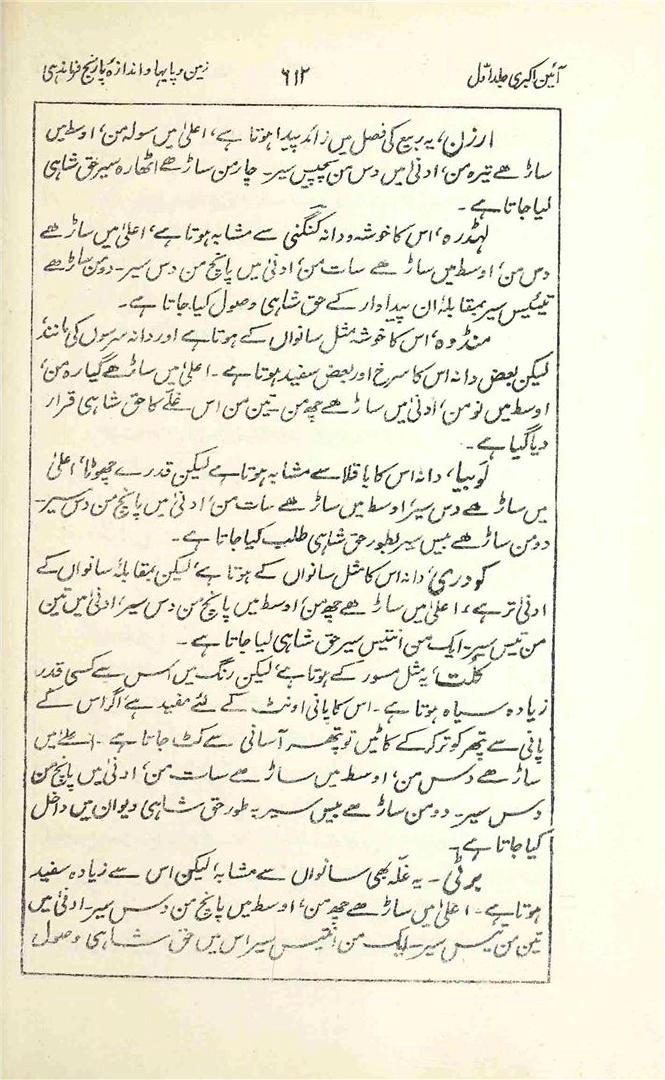 آئین اکبری جلد اوّل
۶۱۲
زمین و پایہا و اندازۂ پارنج فرماندہی
ارزن، یہ ربیع کی فصل میں زائد پیدا ہوتا ہے، اعلیٰ میں سولہ من، اوسط میں
ساڑھے تیرہ من، ادنیٰ میں دس من پچیس سیر۔ چار من ساڑھے اٹھارہ سیر حق شاہی
لیا جاتا ہے۔
لہڈرہ، اس کا خوشہ و دانہ کنگنی سے مشابہ ہوتا ہے، اعلیٰ میں ساڑھے
دس من، اوسط میں ساڑھے سات من، ادنیٰ میں پانچ من دس سیر۔ دو من ساڑھے
تیئیس سیر بمقابلہ ان پیداوار کے حق شاہی وصول کیا جاتا ہے۔
منڈوہ، اس کا خوشہ مثل سانواں کے ہوتا ہے اور دانہ سرسوں کی مانند
لیکن بعض دانہ اس کا سرخ اور بعض سفید ہوتا ہے۔ اعلیٰ میں ساڑھے گیارہ من،
اوسط میں نو من، ادنیٰ میں ساڑھے چھ من۔ تین من اس غلّے کا حق شاہی قرار
دیا گیا ہے۔
لوبیا، دانہ اس کا باقلا سے مشابہ ہوتا ہے لیکن قدرے چھوٹا، اعلیٰ
میں ساڑھے دس سیر، اوسط میں ساڑھے سات من، ادنیٰ میں پانچ من دس سیر۔
دو من ساڑھے بیس سیر بطور حق شاہی طلب کیا جاتا ہے۔
کودری، دانہ اس کا مثل سانواں کے ہوتا ہے، لیکن بمقابلہ سانواں کے
ادنیٰ تر ہے، اعلیٰ میں ساڑھے چھ من، اوسط میں پانچ من دس سیر، ادنیٰ میں تین
من تیس سیر۔ ایک من انتیس سیر حق شاہی لیا جاتا ہے۔
کلت، یہ مثل مسور کے ہوتا ہے، لیکن رنگ میں اس سے کسی قدر
زیادہ سیاہ ہوتا ہے۔ اس کا پانی اونٹ کے لئے مفید ہے، اگر اس کے
پانی سے پتھر کو تر کر کے کاٹیں تو پتھر آسانی سے کٹ جاتا ہے۔ اعلیٰ میں
ساڑھے دس من، اوسط میں ساڑھے سات من، ادنیٰ میں پانچ من
دس سیر۔ دو من ساڑھے بیس سیر بہ طور حق شاہی دیوان میں داخل
کیا جاتا ہے۔
برٹی۔ یہ غلّہ بھی سانواں سے مشابہ لیکن اس سے زیادہ سفید
ہوتا ہے۔ اعلیٰ میں ساڑھے چھ من، اوسط میں پانچ من دس سیر۔ ادنیٰ میں
تین من تیس سیر۔ ایک من انتیس سیر اس میں حق شاہی وصول